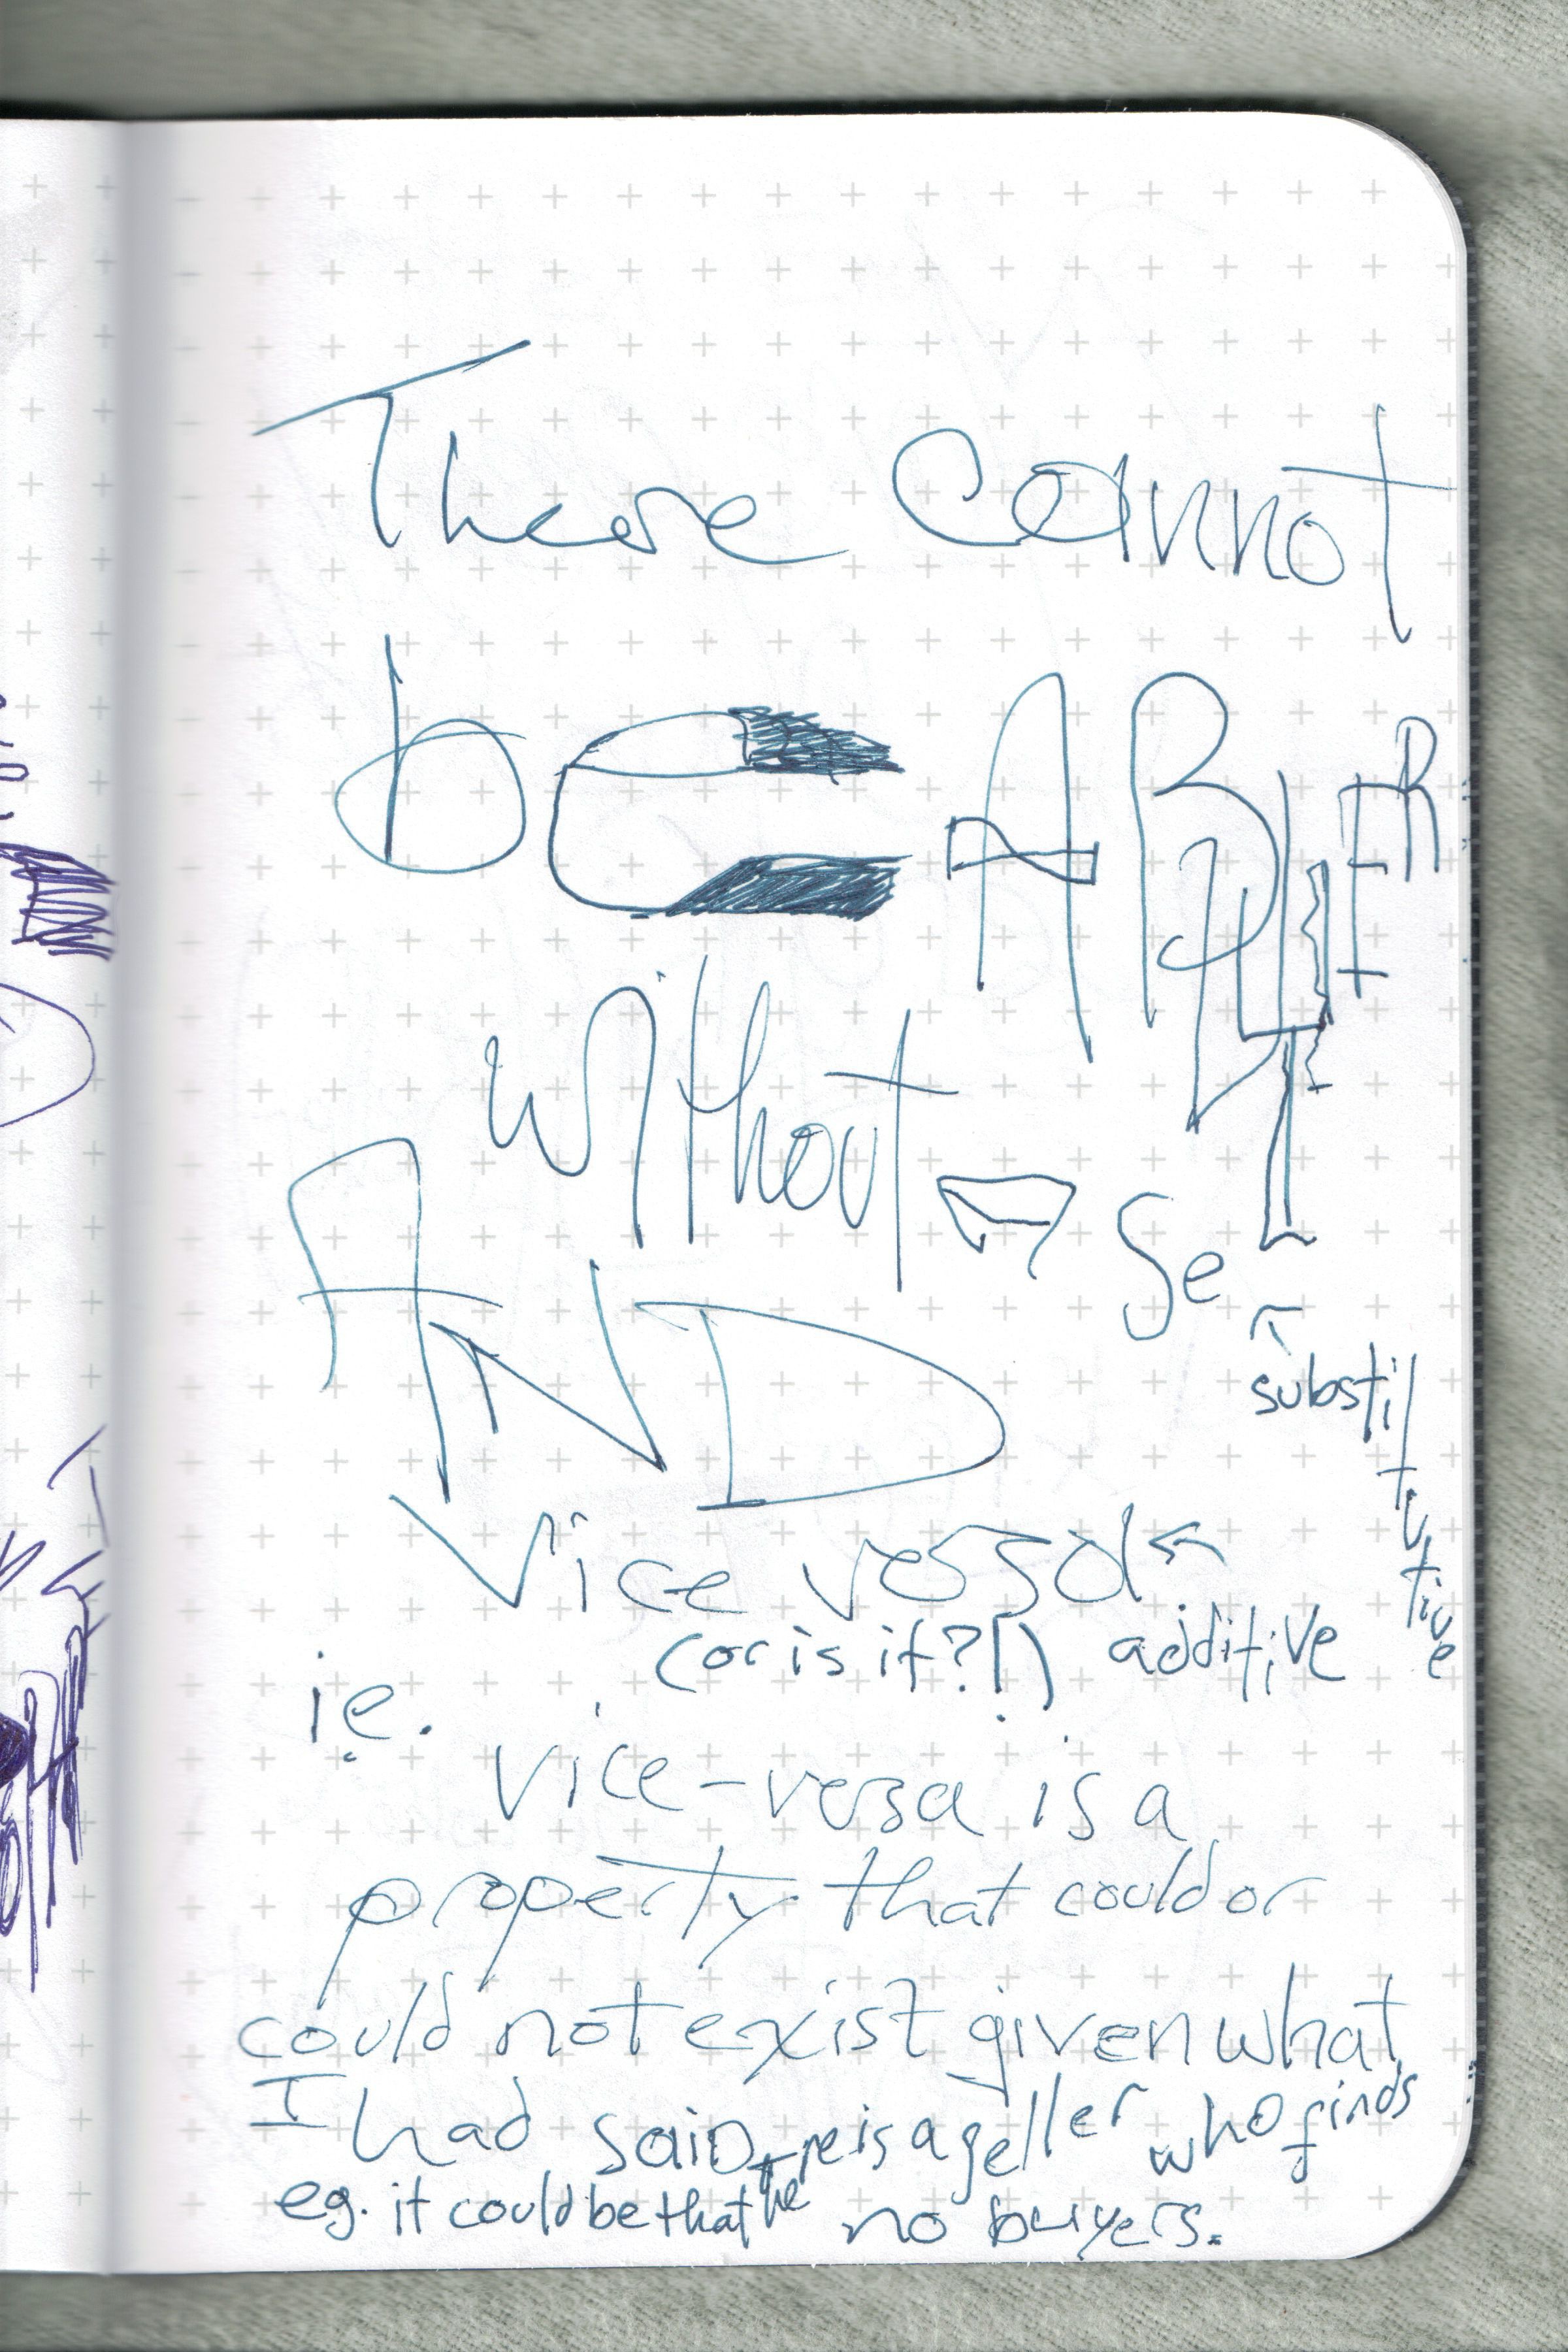 There cannot
be A BUYER
without a Seller
AND
Vice versa
(or is it?!) additive
substitutive
ie.
vice-versa is a
property that could or
could not exist given what
I had said,
eg. it could be that there is a seller who finds
no buyers.